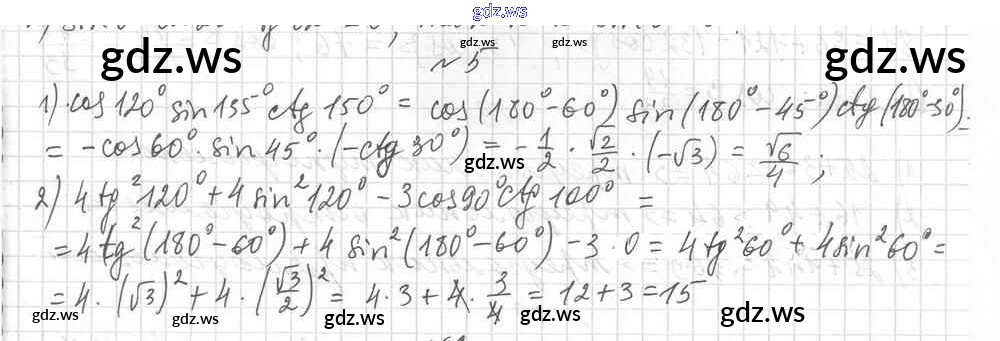 gdz.ws
gdz.ws gdz.ws gdz.ws gdz.ws
№5
1) cos 120° sin 135° ctg 150° = cos(180°-60°) sin(180°-45°) ctg(180°-30°) =
= -cos 60° · sin 45° · (-ctg 30°) = -1/2 · √2/2 · (-√3) = √6/4 ;
gdz.ws gdz.ws
2) 4 tg²120° + 4 sin²120° - 3 cos 90° ctg 100° =
= 4 tg²(180°-60°) + 4 sin²(180°-60°) - 3 · 0 = 4 tg²60° + 4 sin²60° =
= 4 · (√3)² + 4 · (√3/2)² = 4 · 3 + 4 · 3/4 = 12 + 3 = 15
gdz.ws gdz.ws gdz.ws gdz.ws gdz.ws